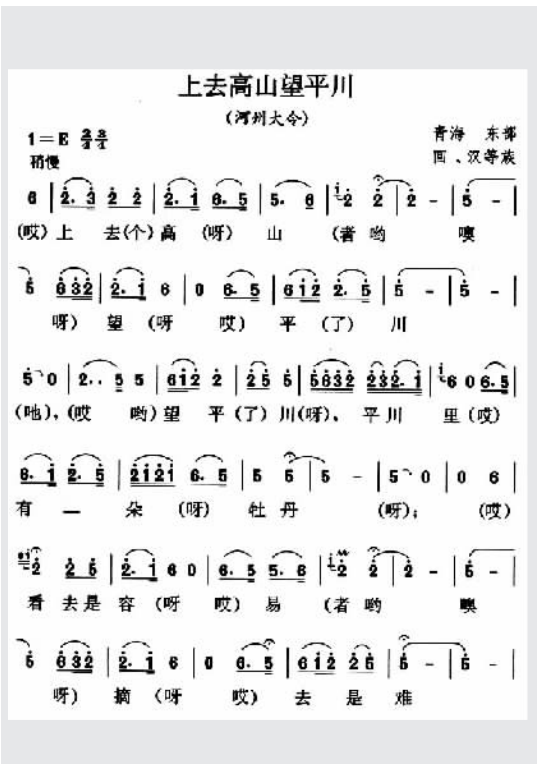 上去高山望平川
(河州大令)
1=E 2/4 3/4
青海 东部
稍慢
回、汉等族
6 | 2. 3 2 2 | 2. 1 6. 5 | 5. 6 | 2 2 | 2 - | 5 - |
(哎)上 去(个)高 (呀) 山 (者哟 噢
5 6 3 2 | 2. 1 6 | 0 6. 5 | 6 1 2 2. 5 | 5 - | 5 - |
呀) 望 (呀 哎) 平 (了) 川
5 0 | 2.. 5 5 | 6 1 2 2 | 2 5 5 | 5 6 3 2 2 3 2. 1 | 6 0 6. 5 |
(吔), (哎 哟)望 平(了)川(呀), 平川 里(哎)
6. 1 2. 5 | 2 1 2 1 6. 5 | 5 5 | 5 - | 5 0 | 0 6 |
有 一 朵 (呀) 牡丹 (呀); (哎)
2 2 5 | 2. 1 6 0 | 6. 5 5. 6 | 2 2 | 2 - | 5 - |
看 去是 容 (呀 哎) 易 (者哟 噢
5 6 3 2 | 2. 1 6 | 0 6. 5 | 6 1 2 2 5 | 5 - | 5 - |
呀) 摘 (呀 哎) 去 是 难